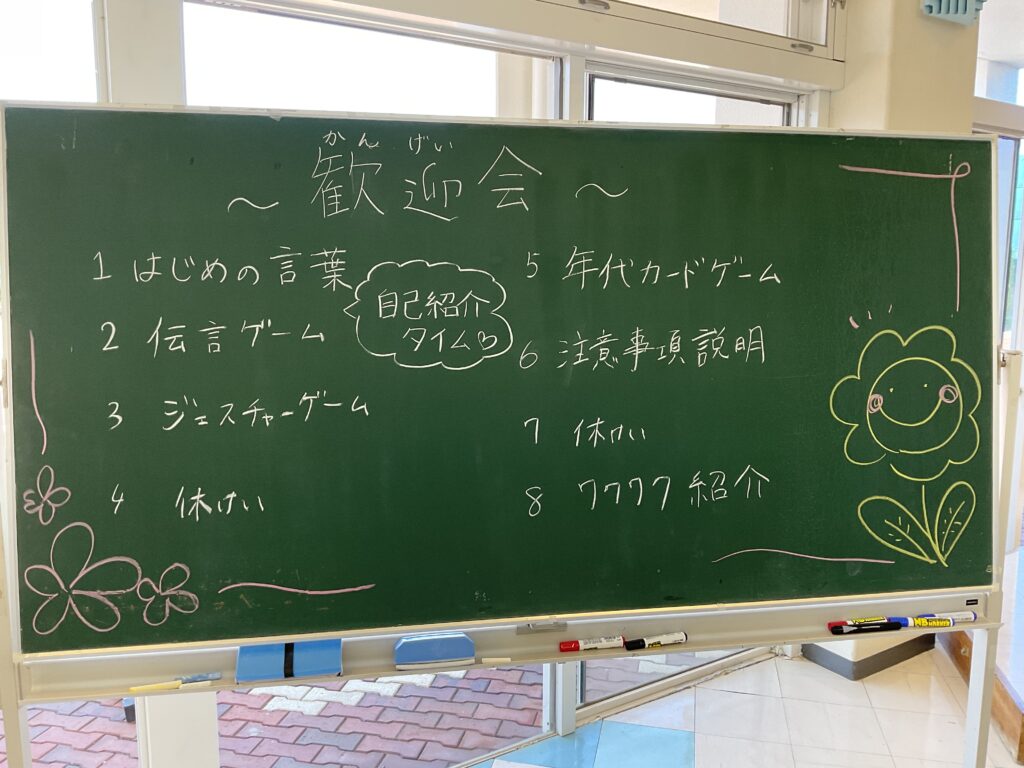 かんげい
～ 歓迎会 ～
1 はじめの言葉
自己紹介
タイム♡
2 伝言ゲーム
3 ジェスチャーゲーム
4 休けい
5 年代カードゲーム
6 注意事項説明
7 休けい
8 ククククク紹介